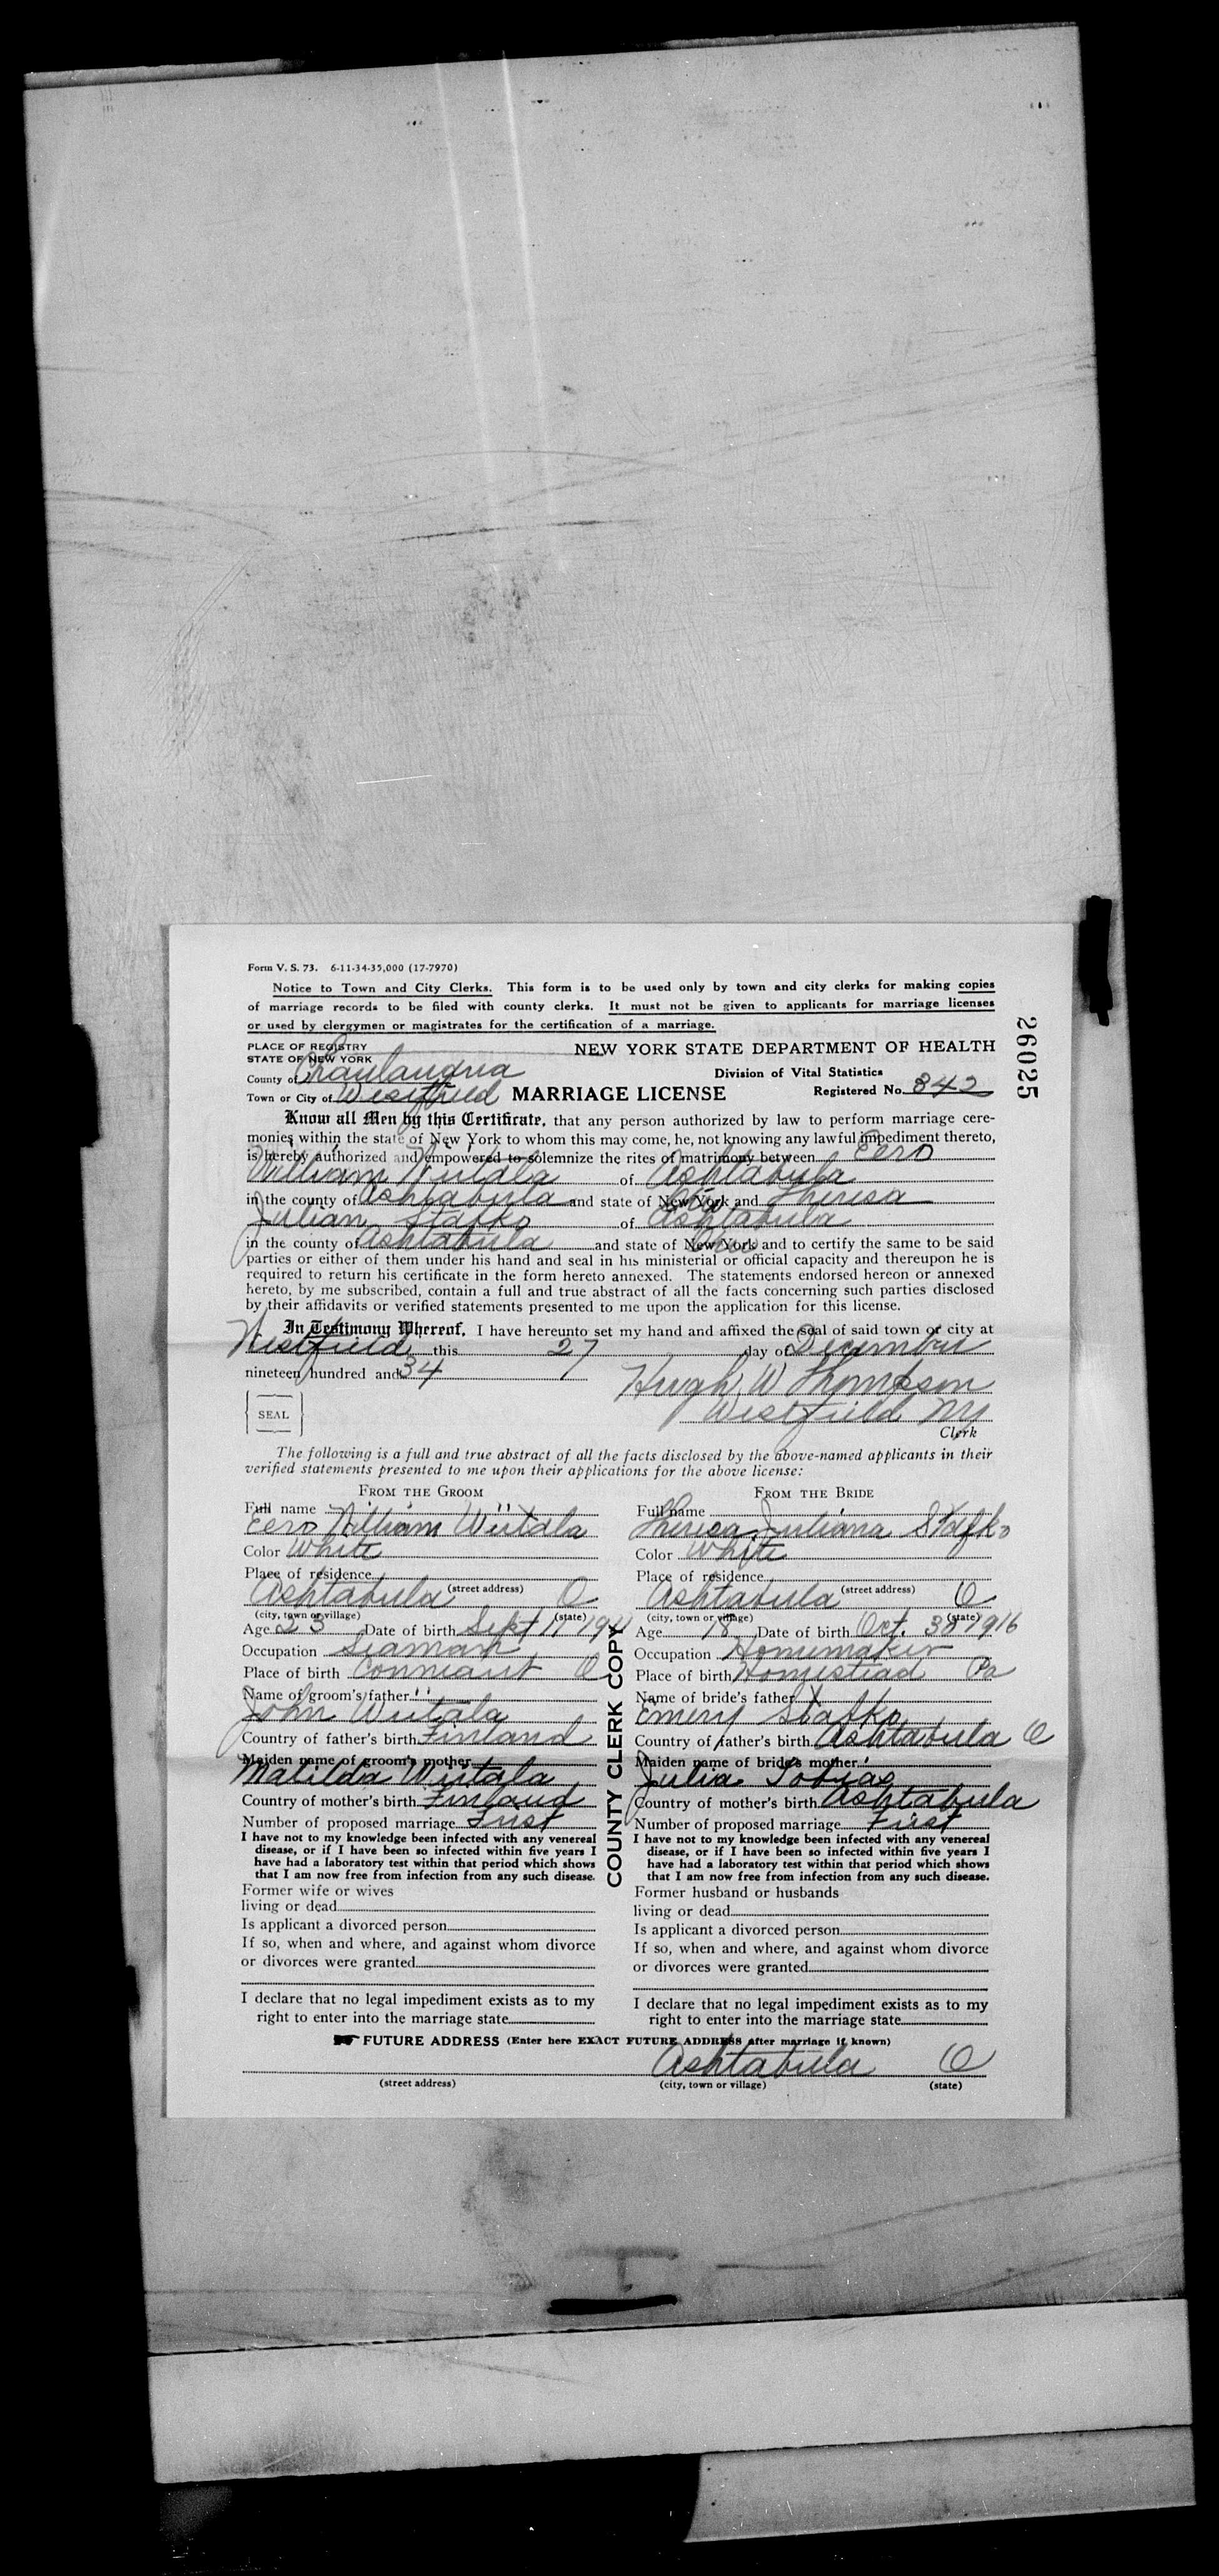 Form V. S. 73. 6-11-34-35,000 (17-7970)
Notice to Town and City Clerks. This form is to be used only by town and city clerks for making copies
of marriage records to be filed with county clerks. It must not be given to applicants for marriage licenses
or used by clergymen or magistrates for the certification of a marriage.
26025
PLACE OF REGISTRY
STATE OF NEW YORK
NEW YORK STATE DEPARTMENT OF HEALTH
County of Chautauqua
Division of Vital Statistics
Town or City of Westfield MARRIAGE LICENSE Registered No. 342
Know all Men by this Certificate, that any person authorized by law to perform marriage cere-
monies within the state of New York to whom this may come, he, not knowing any lawful impediment thereto,
is hereby authorized and empowered to solemnize the rites of matrimony between Eero
William Wiitala of Ashtabula
in the county of Ashtabula and state of New York Ohio and Theresa
Julian Stafko of Ashtabula
in the county of Ashtabula and state of New York Ohio and to certify the same to be said
parties or either of them under his hand and seal in his ministerial or official capacity and thereupon he is
required to return his certificate in the form hereto annexed. The statements endorsed hereon or annexed
hereto, by me subscribed, contain a full and true abstract of all the facts concerning such parties disclosed
by their affidavits or verified statements presented to me upon the application for this license.
In Testimony Whereof, I have hereunto set my hand and affixed the seal of said town or city at
Westfield this 27 day of December
nineteen hundred and 34
Hugh W Thompson
SEAL
Westfield NY
Clerk
The following is a full and true abstract of all the facts disclosed by the above-named applicants in their
verified statements presented to me upon their applications for the above license:
FROM THE GROOM
Full name
Eero William Wiitala
Color White
Place of residence
(street address)
Ashtabula O
(city, town or village) (state)
Age 23 Date of birth Sept 11 1911
Occupation Seaman
Place of birth Conneaut O
Name of groom's father
John Wiitala
Country of father's birth Finland
Maiden name of groom's mother
Matilda Wiitala
Country of mother's birth Finland
Number of proposed marriage First
I have not to my knowledge been infected with any venereal
disease, or if I have been so infected within five years I
have had a laboratory test within that period which shows
that I am now free from infection from any such disease.
Former wife or wives
living or dead
Is applicant a divorced person
If so, when and where, and against whom divorce
or divorces were granted
I declare that no legal impediment exists as to my
right to enter into the marriage state
COUNTY CLERK COPY
FROM THE BRIDE
Full name
Theresa Juliana Stafko
Color White
Place of residence
(street address)
Ashtabula O
(city, town or village) (state)
Age 18 Date of birth Oct. 30 1916
Occupation Homemaker
Place of birth Homestead Pa
Name of bride's father
Emery Stafko
Country of father's birth Ashtabula O
Maiden name of bride's mother
Julia Tobias
Country of mother's birth Ashtabula
Number of proposed marriage First
I have not to my knowledge been infected with any venereal
disease, or if I have been so infected within five years I
have had a laboratory test within that period which shows
that I am now free from infection from any such disease.
Former husband or husbands
living or dead
Is applicant a divorced person
If so, when and where, and against whom divorce
or divorces were granted
I declare that no legal impediment exists as to my
right to enter into the marriage state
FUTURE ADDRESS (Enter here EXACT FUTURE ADDRESS after marriage if known)
Ashtabula O
(street address) (city, town or village) (state)